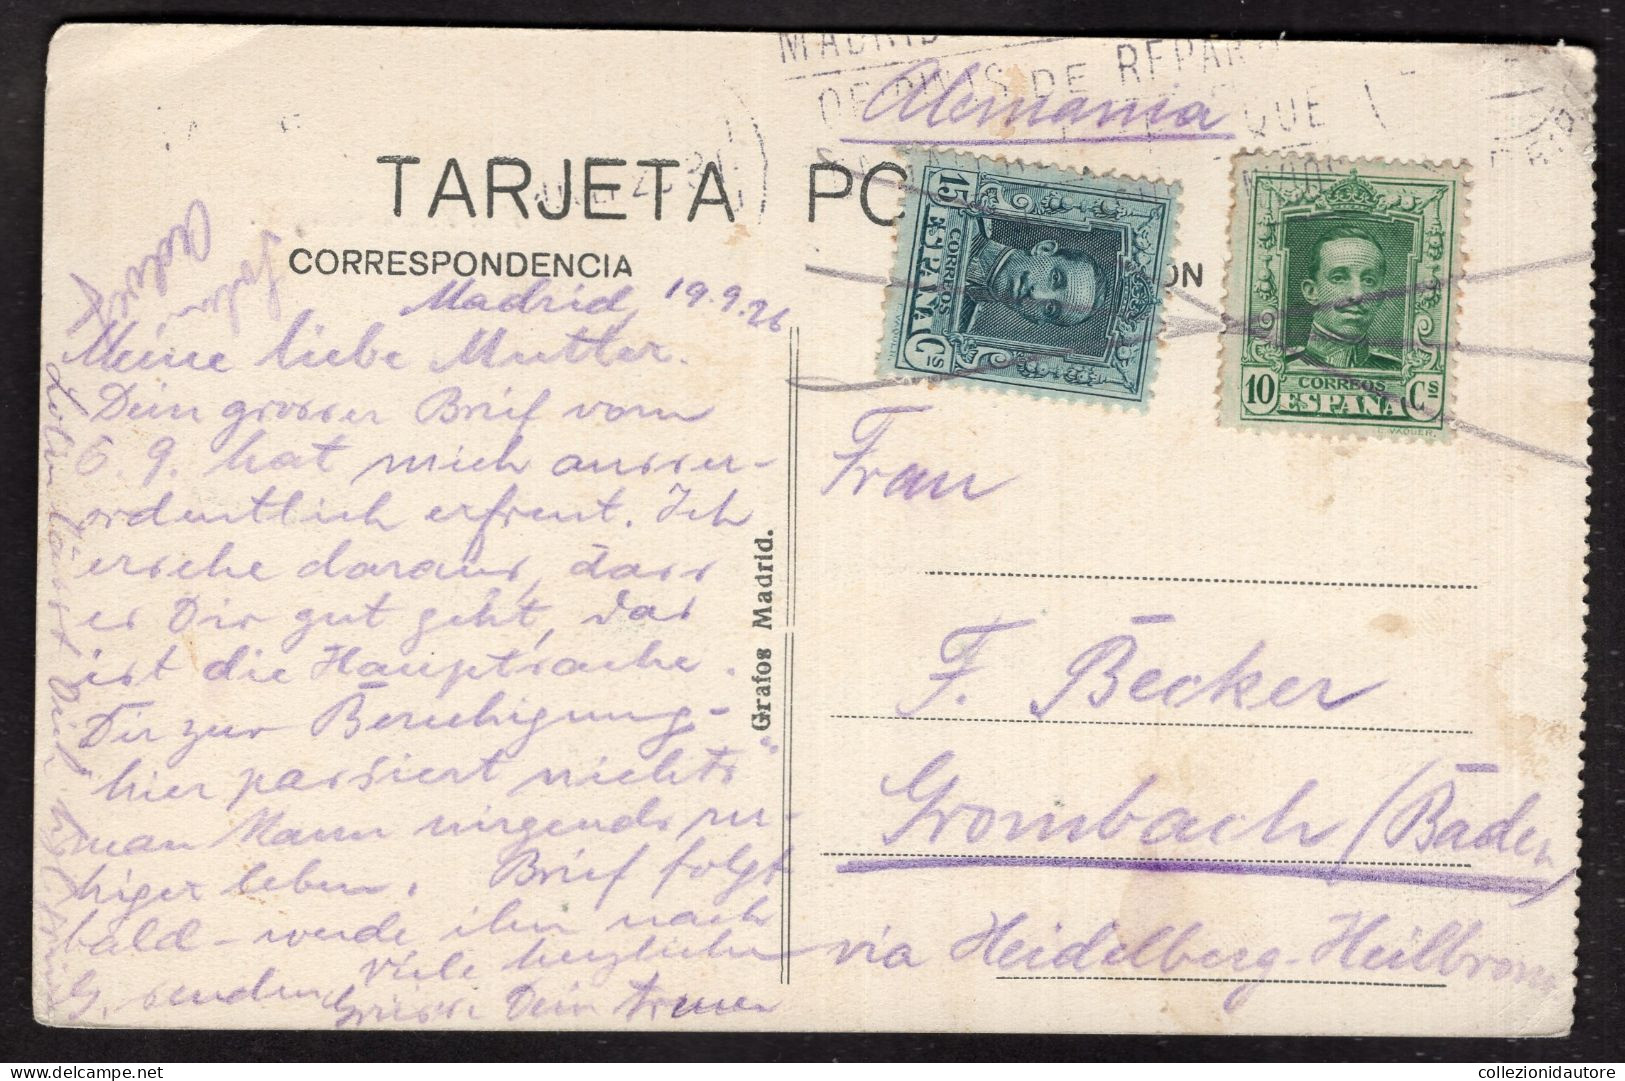 MADRID
DE REPAR
QUE
Alemania
TARJETA PO
CORRESPONDENCIA
ON
15 Cs
CORREOS
ESPAÑA
10 Cs
CORREOS
ESPAÑA
L. VAQUER.
Madrid, 19.9.26
Meine liebe Mutter.
Dein grosser Brief vom
6. 9. hat mich ausser-
ordentlich erfreut. Ich
ersehe daraus, dass
es Dir gut geht, das
ist die Hauptsache.
Dir zur Beruhigung -
hier passiert nichts
man kann nirgends ru-
higer leben. Brief folgt
bald - werde ihn nach
G. senden. Viele herzliche
Grüsse Dein treuer
Sohn
Grafos Madrid.
Frau
F. Becker
Grombach / Baden
via Heidelberg-Heilbronn
collezionidautore